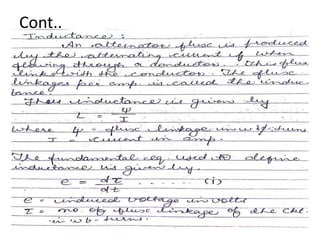 Cont..
Inductance :
An alternator flux is produced
by the alternating current if when
flowing through a conductor. This flux
links with the conductor. The flux
linkages per amp is called the induc-
tance.
Thus inductance is given by
L = Ψ / I
where Ψ = flux linkage in wb/-turns
I = current in amp.
The fundamental eq. used to define
inductance is given by,
e = dτ / dt ...... (i)
e = induced voltage in volts
τ = no of flux linkage of the ckt.
in wb-turns.